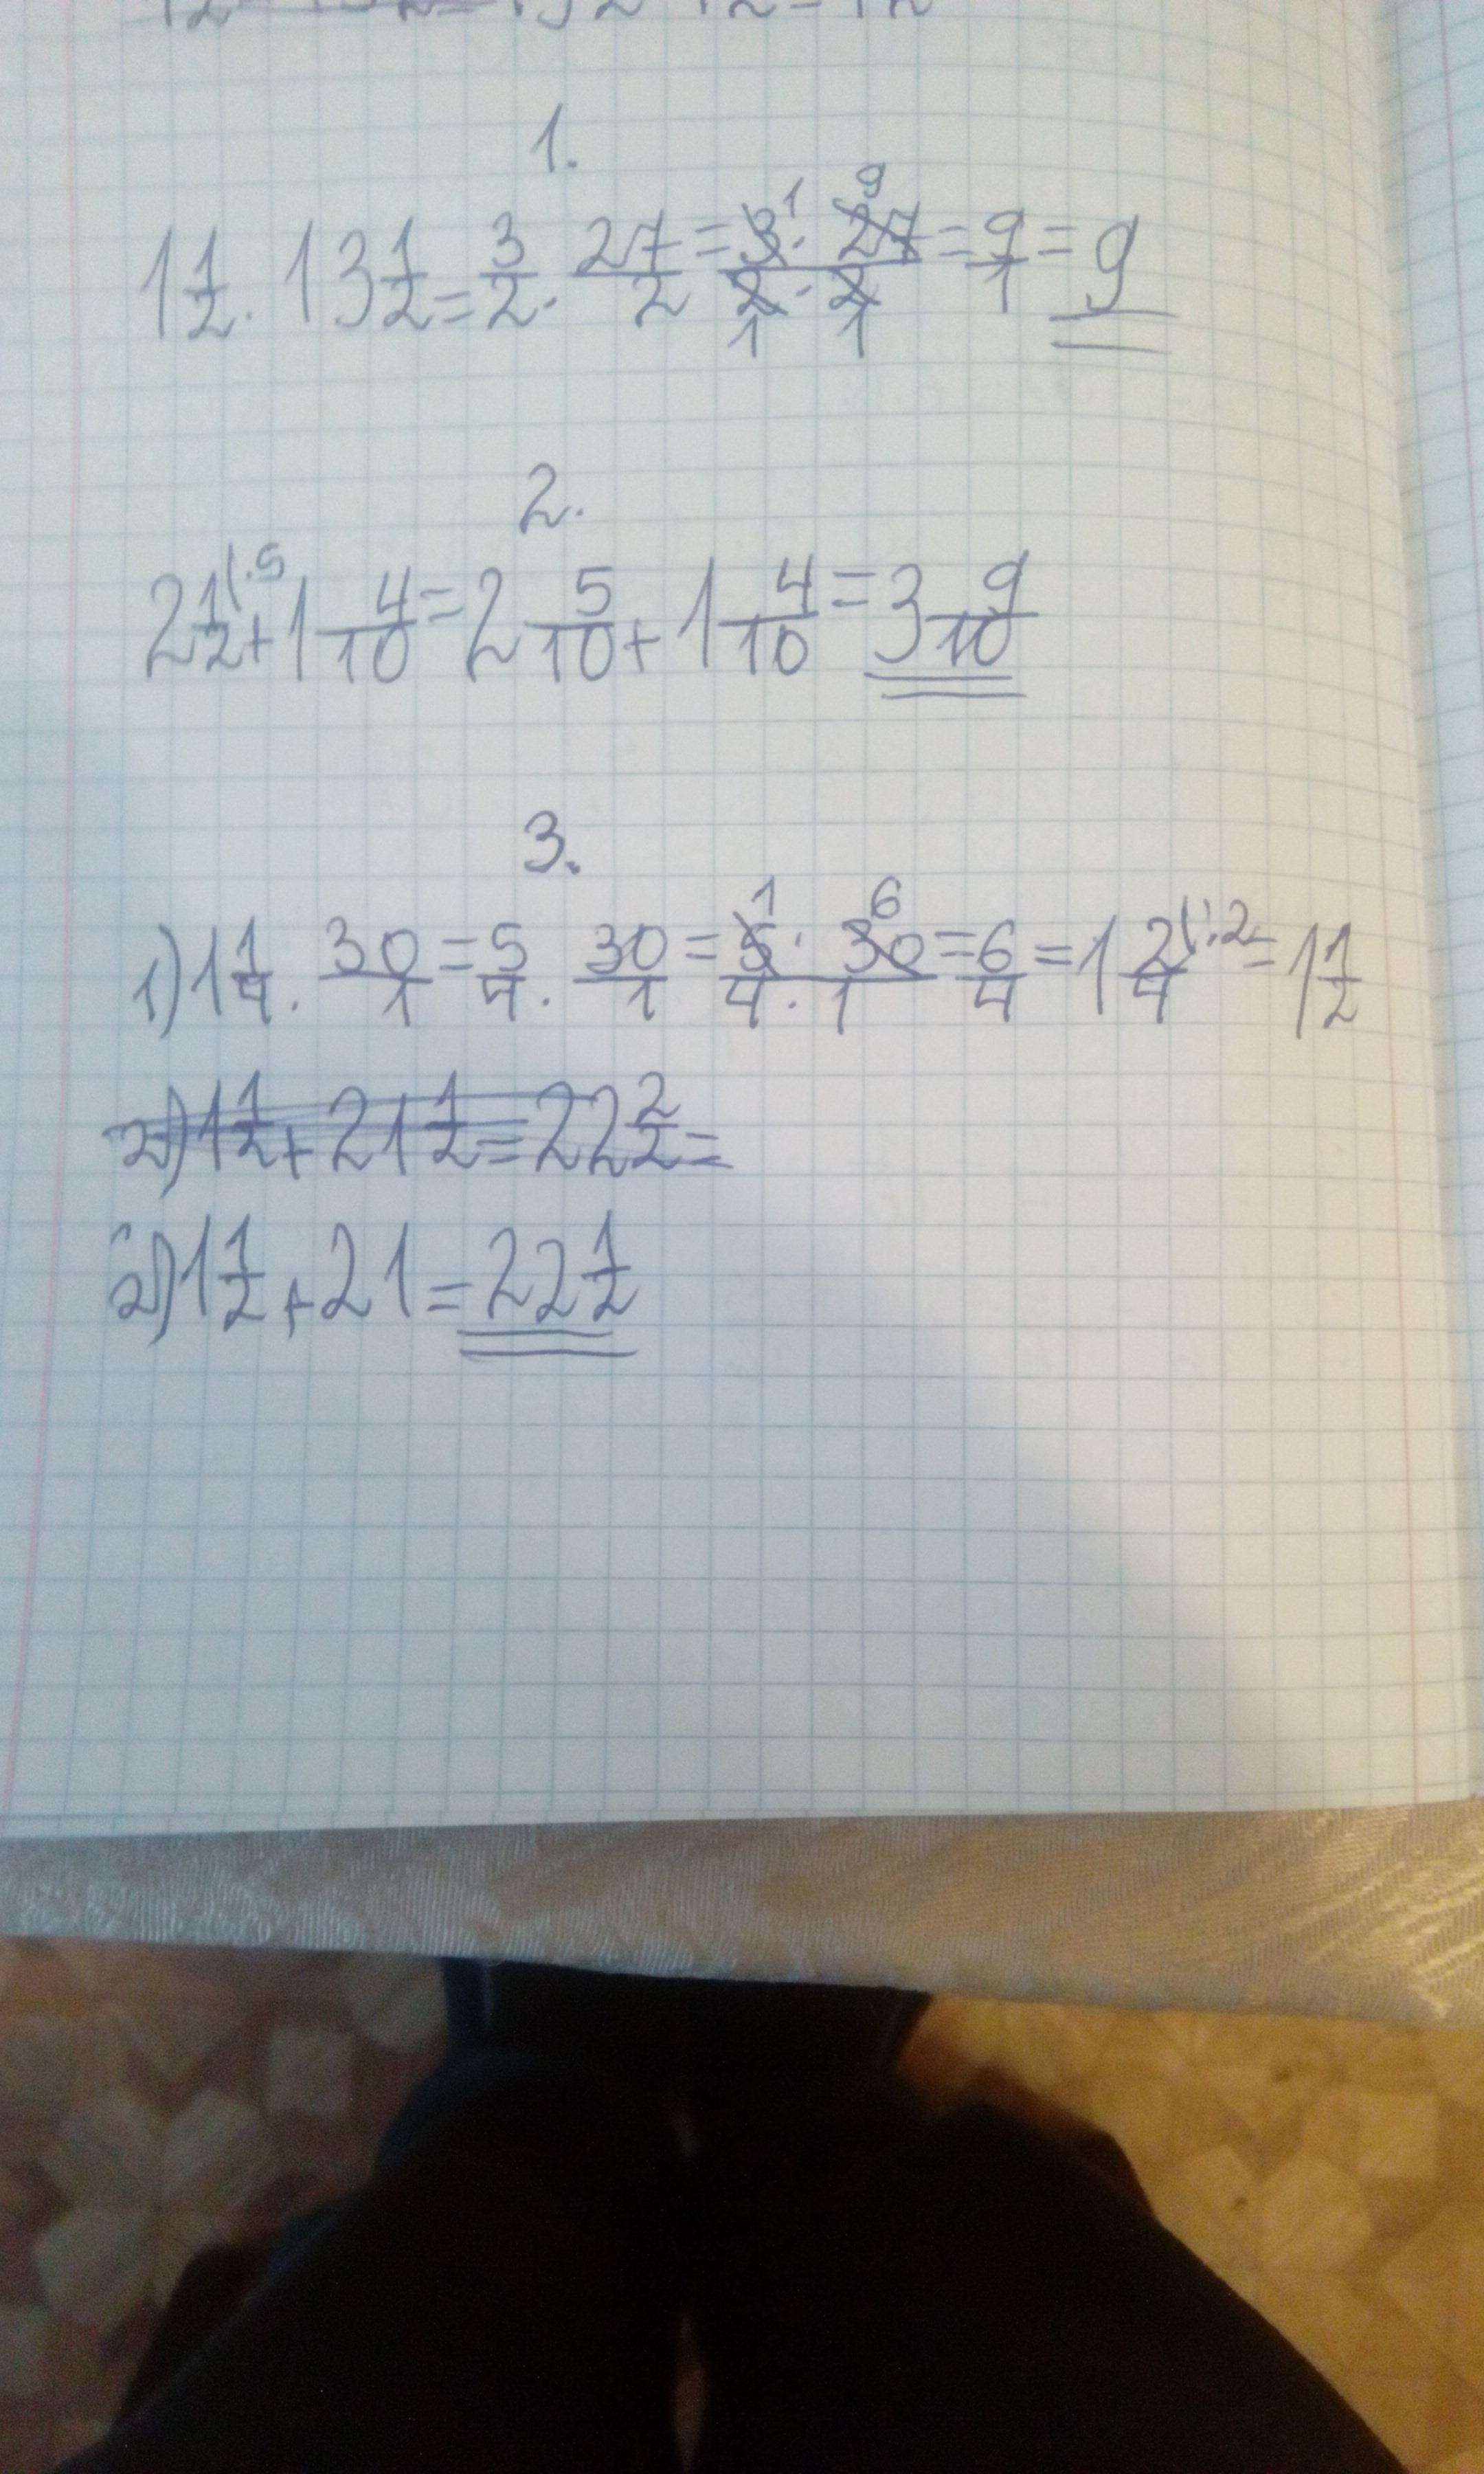 1.
1 1/2 · 13 1/2 = 3/2 · 27/2 = 3 1 · 27 9 / 2 1 · 2 1 = 9/1 = 9
2.
2 1/2 (·5 + 1 4/10 = 2 5/10 + 1 4/10 = 3 9/10
3.
1) 1 1/4 · 30/1 = 5/4 · 30/1 = 5 1 · 30 6 / 4 · 1 = 6/4 = 1 2/4 (:2 = 1 1/2
2) 1 1/2 + 21 1/2 = 22 2/2 =
2) 1 1/2 + 21 = 22 1/2